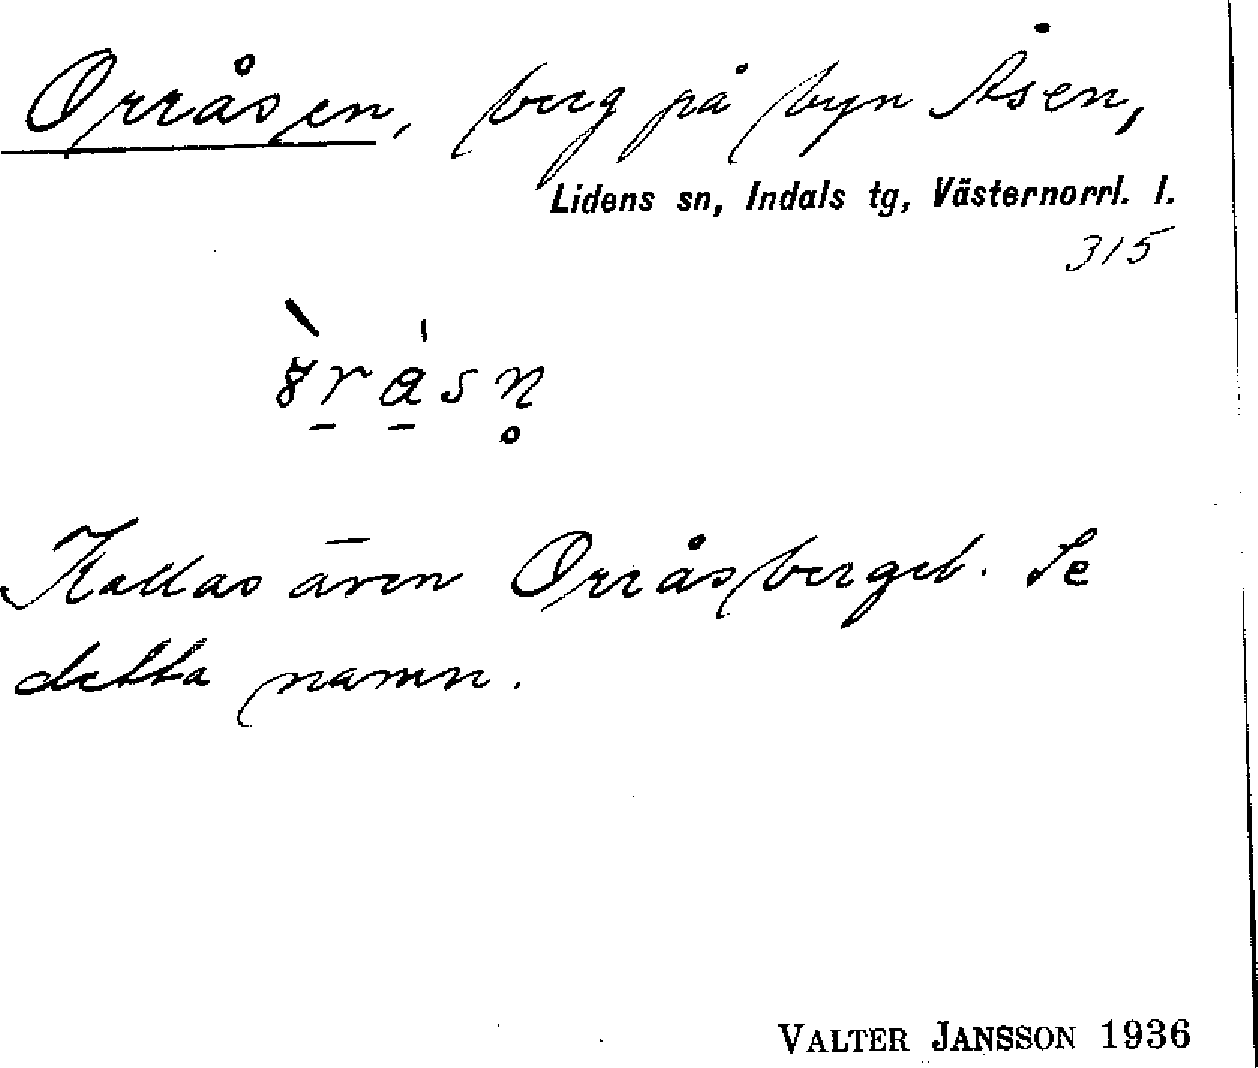 Orråsen, berg på byn Åsen,
Lidens sn, Indals tg, Västernorrl. l.
315
Kallas även Orråsberget. Se
detta namn.
VALTER JANSSON 1936